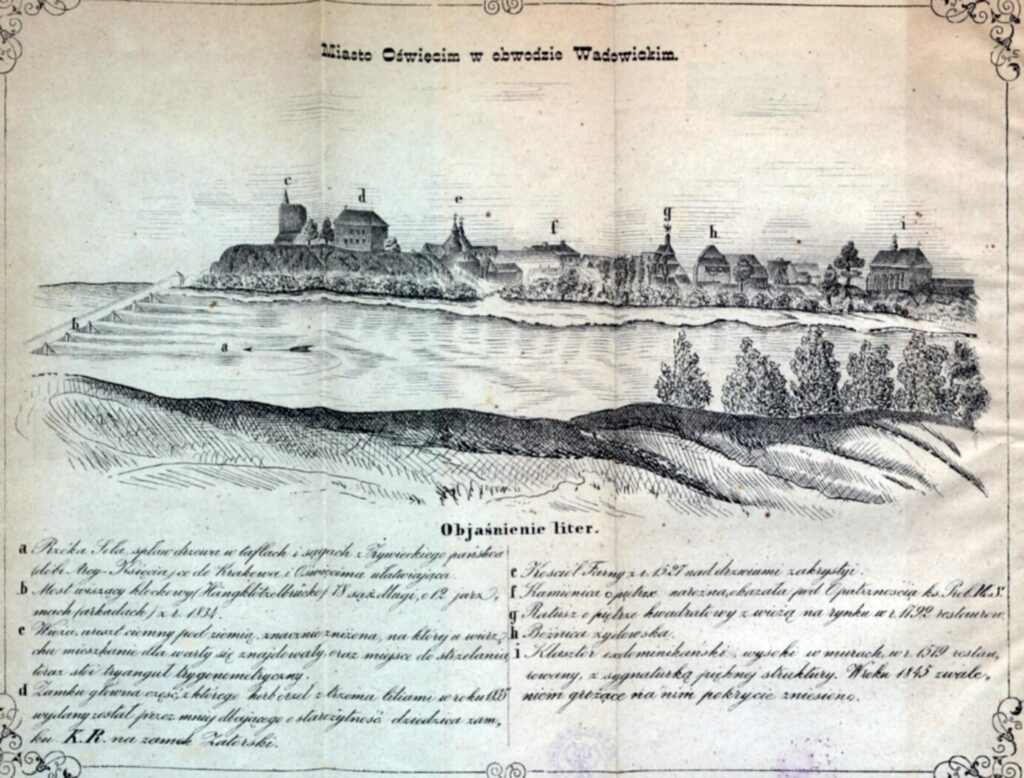 Miasto Oświęcim w obwodzie Wadowickim.
c
d
e
f
g
h
i
b
a
Objaśnienie liter.
a Rzéka Soła, spław drzewa w taflach i sągach z Żywieckiego państwa
(dóbr Arcy-Księcia) co do Krakowa i Oświęcima ułatwiająca.
b Most wiszący klockowy (Hängklötzelbrücke) 78 sąż. długi, o 12 jarz,,
mach (arkadach) z r. 1834.
c Wieża, areszt ciemny pod ziemią, znacznie zniżona, na któréj u wierz,,
chu mieszkanie dla warty się znajdowały oraz miejsce do strzelania
teraz stoi tryanguł trygonometryczny.
d Zamku główna część, z którego herb orzeł z trzema liliami w roku 1835
wydany został przez mniéj dbającego o starożytność dziedzica zam,,
ku K.R. na zamek Zatorski.
e Kościół Farny z r. 1527 nad drzwiami zakrystyi.
f Kamienica o piętrze narożna, okazała pod Opatrznością ks.
g Ratusz o piętrze kwadratowy z wieżą na rynku w r. 1792 restaurow.
h Bożnica żydowska.
i Klasztor exdominikański, wysoki w murach, w r. 1519 restau,,
rowany, z sygnaturką pięknéj struktury. W roku 1845 zwale,,
niem grożące na nim pokrycie zniesiono.